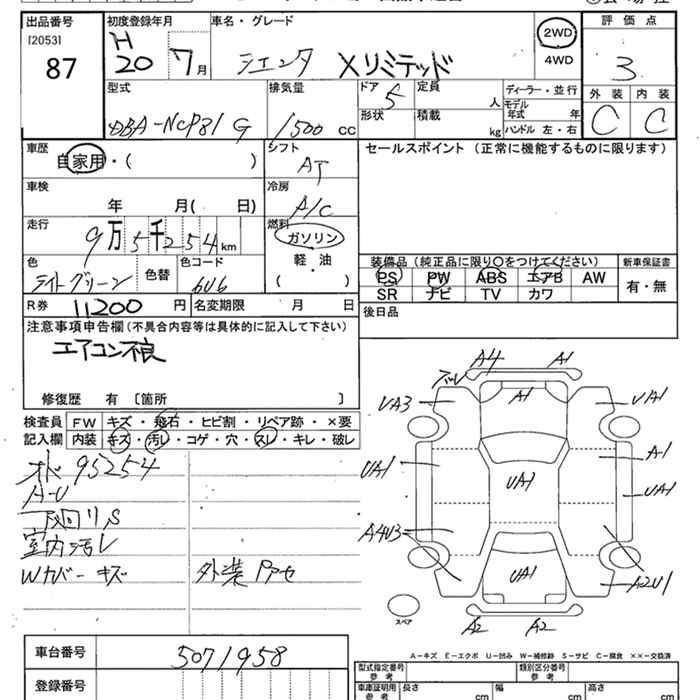 出品番号 初度登録年月 車名・グレード 2WD 評価点
[2053] H 4WD
87 20 7月 シエンタ Xリミテッド 3
型式 排気量 ドア 定員 ディーラー・並行 外装 内装
DBA-NCP81G 1500cc 5 人 モデル年式 年 C C
形状 積載 kg ハンドル 左・右
車歴 シフト セールスポイント (正常に機能するものに限ります)
自家用・( ) AT
車検 冷房
年 月( 日) A/C
走行 燃料
9万5千254km ガソリン 装備品 (純正品に限り○をつけてください) 新車保証書
色 色替 色コード 軽・油 PS PW ABS エアB AW 有・無
ライトグリーン 6U6 ( ) SR ナビ TV カワ
R券 11200円 名変期限 月 日 後日品
注意事項申告欄(不具合内容等は具体的に記入して下さい)
エアコン不良
修復歴 有 〔箇所 〕
検査員 FW キズ・飛石・ヒビ割・リペア跡・×要
記入欄 内装 キズ・汚レ・コゲ・穴・スレ・キレ・破レ
95254
下廻りS
室内汚レ
Wカバーキズ 外装
A4 A1
UA3 A1 UA1
UA1 UA1 A1
UA1
A4U3
UA1 A2U1
スペア A2 A2
A-キズ E-エクボ U-凹み W-補修跡 S-サビ C-腐食 ××-交換済
車台番号 5071958 型式指定番号 参考 類別区分番号 参考
登録番号 車庫証明用 参考 長さ cm 幅 cm 高さ cm